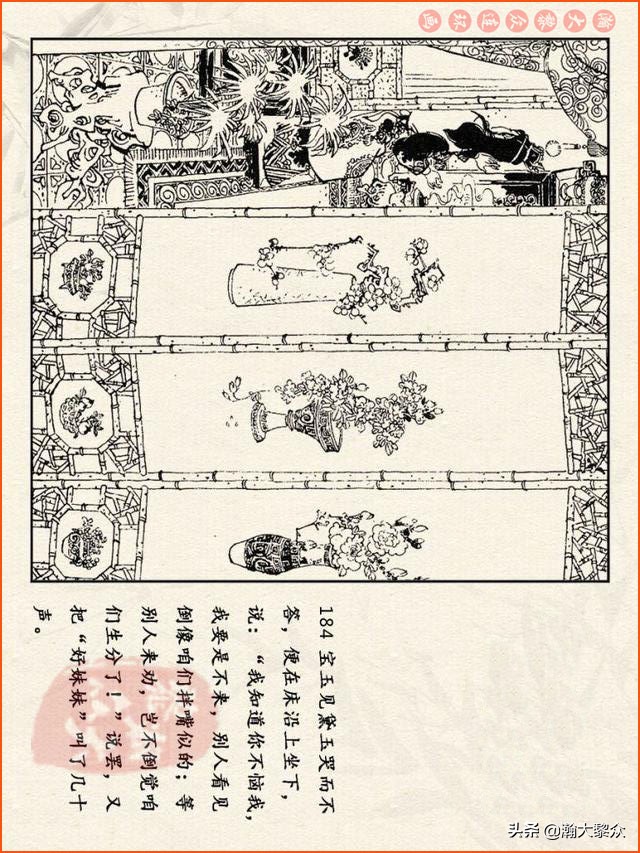 瀚大黎众连环画
184 宝玉见黛玉哭而不
答，便在床沿上坐下，
说：“我知道你不恼我，
我要是不来，别人看见
倒像咱们拌嘴似的；等
别人来劝，岂不倒觉咱
们生分了！”说罢，又
把“好妹妹”叫了几十
声。
头条 @瀚大黎众